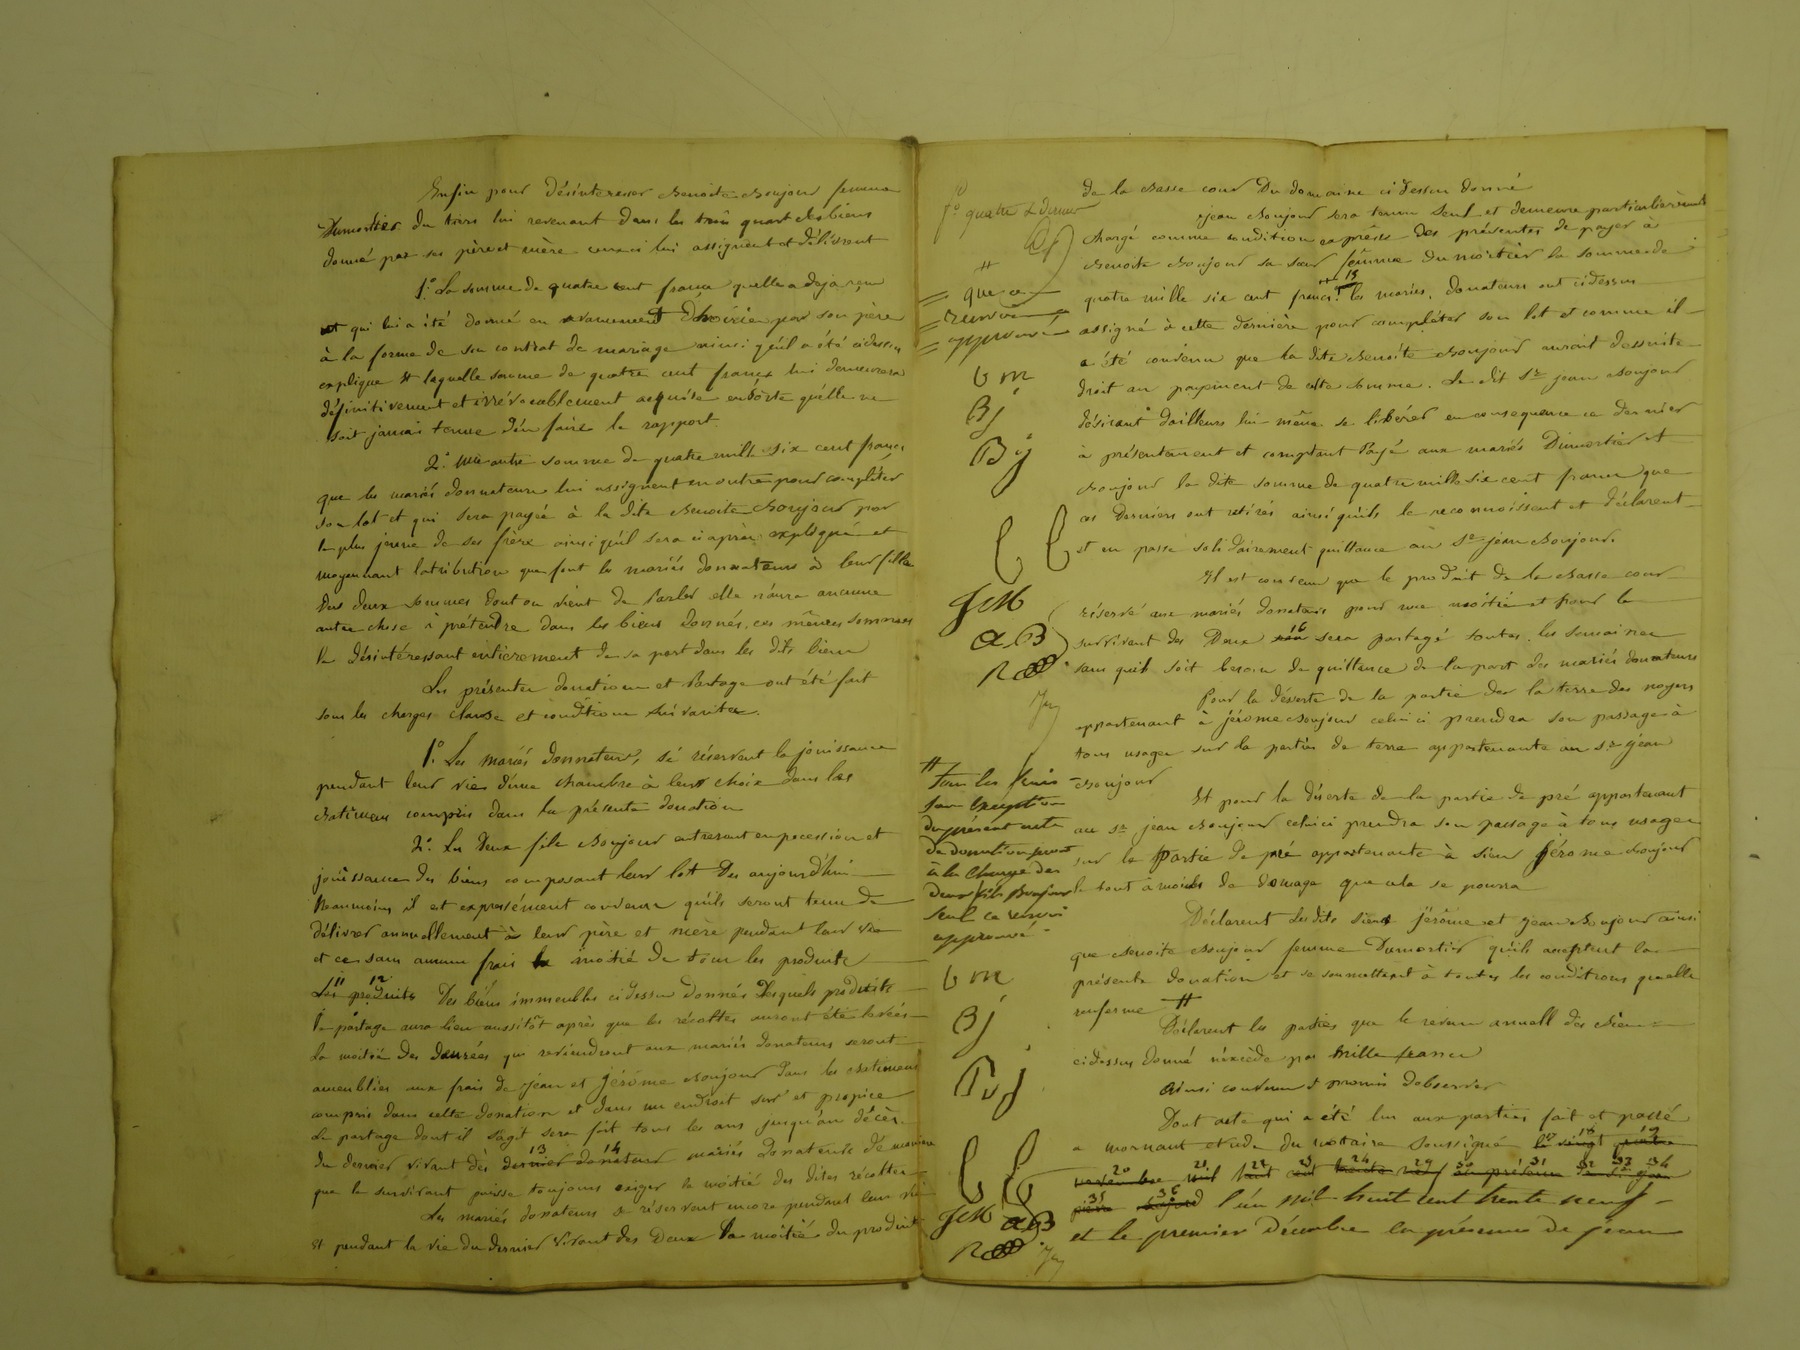 Enfin pour désintéresser Benoite Boujour femme
Dumortier du tiers lui revenant dans les trois quart des biens
donné par ses père et mère ceux ci lui assignent et délivrent
1.° La somme de quatre cent francs quelle a déja reçu
et qui lui a été donné en avancement d'hoirie par son père
à la forme de son contrat de mariage ainsi qu'il a été cidessus
expliqué et laquelle somme de quatre cent francs lui demeurera
définitivement et irrévocablement acquise ensorte qu'elle ne
soit jamais tenue d'en faire le rapport.
2.° Une autre somme de quatre mille six cent francs
que les mariés donnateurs lui assignent en outre pour compléter
son lot et qui sera payée à la dite Benoite Boujour par
le plus jeune de ses frère ainsi qu'il sera ci après expliqué et
moyennant latribution que font les mariés donnateurs à leur fille
des deux sommes dont on vient de parler elle n'aura aucune
autre chose à prétendre dans les biens donnés, ces mêmes sommes
la désintéressant entièrement de sa part dans les dits biens
Les présentes donation et Partage ont été fait
sous les charges clause et condition suivantes.
1.° Les mariés donnateurs, se réservent la jouissance
pendant leur vie d'une chambre à leur choix dans les
Batimens compris dans la présente donation
2.° Les deux fils Boujour entreront en pocession et
jouissance des biens composant leur lot Des aujourd'hui
Neaumoins il est expressément convenu qu'ils seront tenu de
délivrer annuellement à leur père et mère pendant leur vie
et ce sans aucun frais la moitié de tous les produits
11 12
Les produits Des biens immeubles cidessus donnés desquels produits
le partage aura lieu aussitôt après que les récoltes auront été levées
La moitié des denrées qui reviendront aux mariés donateurs seront
ameublies aux frais de Jean et Jérôme Boujour dans les Batimens
compris dans cette donation et dans un endroit sur et propice
Le partage dont il s'agit sera fait tous les ans jusqu'au décès
13 14
du dernier vivant dès dernier donateur mariés Donateurs de manière
que le survivant puisse toujours exiger la moitié des dites récoltes
Les mariés donateurs se réservent encore pendant leur vie
et pendant la vie du dernier vivant des Deux la moitié du produit
f.° quatre & dernier
de la Basse cour Du domaine ci dessus donné
Jean Boujour sera tenu Seul et demeure particulièrement
chargé comme condition expresse Des présentes de payer à
Benoite Boujour sa sœur femme Dumortier la somme de
15
quatre mille six cent francs # les mariés donateurs ont cidessus
assigné à cette dernière pour compléter son lot et comme il
a été convenu que la dite Benoite Boujour aurait de suite
droit au payement de cette somme. Le dit Sr Jean Boujour
désirant d'ailleurs lui même se libérer en conséquence ce dernier
à présentement et comptant Payé aux mariés Dumortier et
Boujour la dite somme de quatre mille six cent francs que
ces Derniers ont retirés ainsi qu'ils le reconnaissent et déclarent
et en passe solidairement quittance au Sr Jean Boujour.
Il est convenu que le produit de la Basse cour
réservé aux mariés donateurs pour une moitié et pour le
16
survivant des Deux sera partagé toutes les semaines
sans qu'il soit besoin de quittance de la part des mariés donateurs
Pour la déserte de la partie de la terre des noyers
appartenant à Jérôme Boujour celui ci prendra son passage à
tous usages sur la partie de terre appartenante au Sr Jean
Boujour
Et pour la déserte de la partie de pré appartenant
au Sr Jean Boujour celui ci prendra son passage à tous usages
sur la Partie de pré appartenante à Sieur Jérome Boujour
le tout à moins de domage que cela se pourra
Déclarent Les dits sieurs Jérôme et Jean Boujour ainsi
que Benoite Boujour femme Dumortier qu'ils acceptent la
présente donation et se soumettent à toutes les conditions qu'elle
renferme #
Déclarent les parties que le revenu annuel des Biens
cidessus donné n'excède pas mille francs
Ainsi convenu et promis d'observer
Dont acte qui a été lu aux parties fait et passé
17 18 19
a mornant etude du notaire soussigné le vingt quatre
20 21 22 23 24 29 30 31 32 33 34
novembre mil huit cent trente neuf en présence de Sr Jean
35 36
l'an mil huit cent trente neuf
et le premier décembre en présence de Jean
#
que ce
renvoi
approuvé
b m
B j
B j
JM
a B
#
Tous les frais
sans exception
du présent acte
de donation sont
à la charge des
deux fils Boujour
seul ce renvoi
approuvé
b m
B j
B j
JM a B